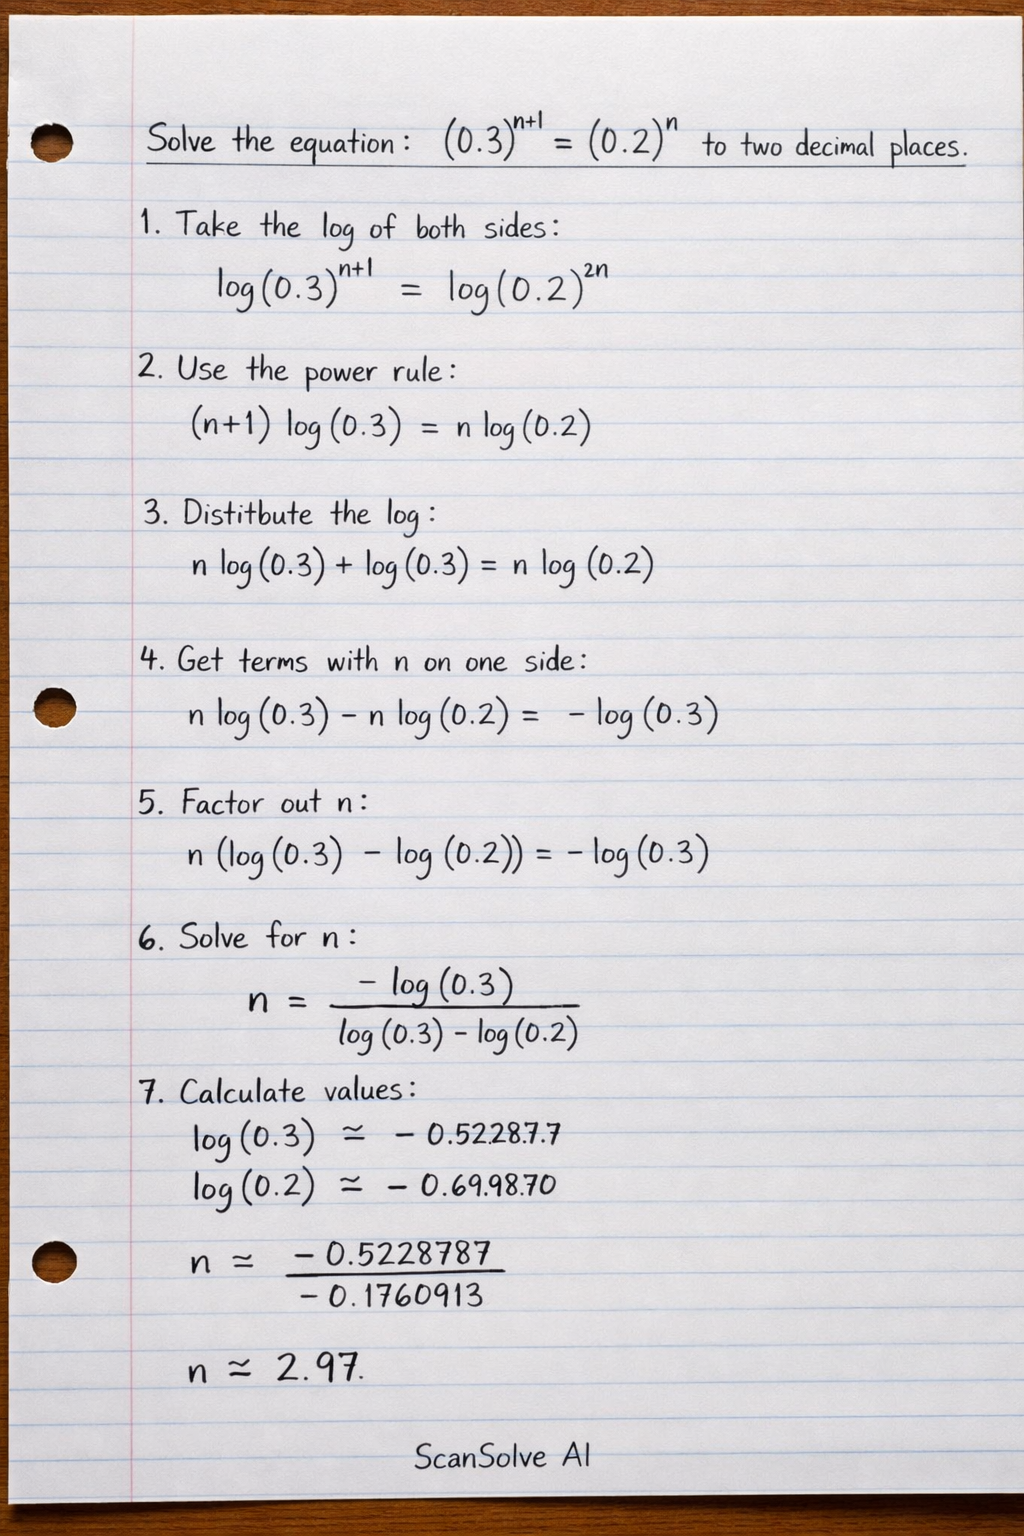 Solve the equation: (0.3)^{n+1} = (0.2)^n to two decimal places.
1. Take the log of both sides:
log(0.3)^{n+1} = log(0.2)^{2n}
2. Use the power rule:
(n+1) log(0.3) = n log(0.2)
3. Distitbute the log:
n log(0.3) + log(0.3) = n log (0.2)
4. Get terms with n on one side:
n log(0.3) − n log(0.2) = − log(0.3)
5. Factor out n:
n (log(0.3) − log(0.2)) = − log(0.3)
6. Solve for n:
n = \frac{− log(0.3)}{log(0.3) − log(0.2)}
7. Calculate values:
log(0.3) ≃ − 0.52287.7
log(0.2) ≃ − 0.69.98.70
n ≃ \frac{− 0.5228787}{− 0.1760913}
n ≃ 2.97.
ScanSolve AI